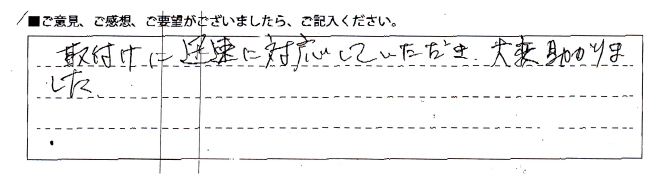 ■ご意見、ご感想、ご要望がございましたら、ご記入ください。
取付けに迅速に対応していただき、大変助かりま
した。